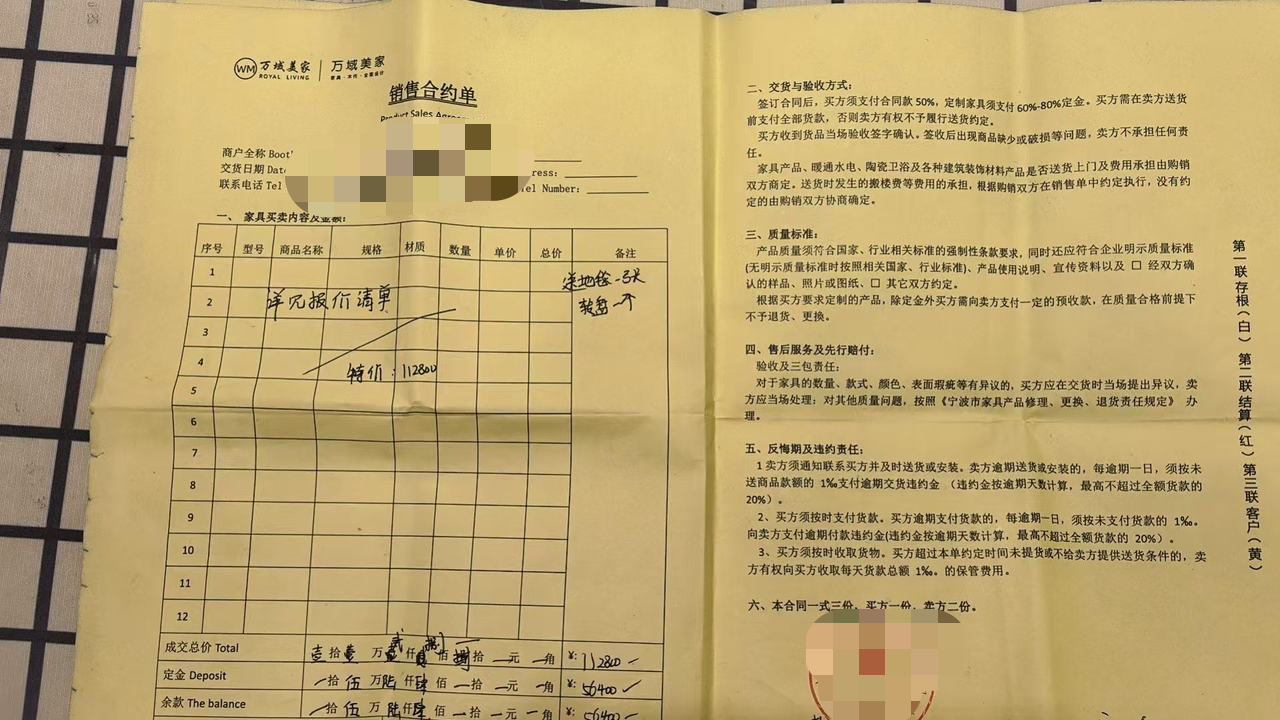 WM 万域美家 ROYAL LIVING | 万域美家 家具·木作·全案设计
销售合约单
Product Sales Agree
商户全称 Boot
交货日期 Dat
ress:
联系电话 Tel
Tel Number:
一、 家具买卖内容及金额:
序号 型号 商品名称 规格 材质 数量 单价 总价 备注
1
送地毯一张
2 详见报价清单
转盘一个
3
4
特价:112800
5
6
7
8
9
10
11
12
成交总价 Total 壹 拾 壹 万 贰 仟 捌 佰 一 拾 一 元 一 角 ¥: 112800
定金 Deposit 一 拾 伍 万 陆 仟 肆 佰 一 拾 一 元 一 角 ¥: 56400
余款 The balance 一 拾 伍 万 陆 仟 肆 佰 一 拾 一 元 一 角 ¥: 56400
二、交货与验收方式:
签订合同后,买方须支付合同款 50%,定制家具须支付 60%-80%定金。买方需在卖方送货
前支付全部货款,否则卖方有权不予履行送货约定。
买方收到货品当场验收签字确认。签收后出现商品缺少或破损等问题,卖方不承担任何责
任。
家具产品、暖通水电、陶瓷卫浴及各种建筑装饰材料产品是否送货上门及费用承担由购销
双方商定。送货时发生的搬楼费等费用的承担,根据购销双方在销售单中约定执行,没有约
定的由购销双方协商确定。
三、质量标准:
产品质量须符合国家、行业相关标准的强制性条款要求,同时还应符合企业明示质量标准
(无明示质量标准时按照相关国家、行业标准)、产品使用说明、宣传资料以及 □ 经双方确
认的样品、照片或图纸、□ 其它双方约定。
根据买方要求定制的产品,除定金外买方需向卖方支付一定的预收款,在质量合格前提下
不予退货、更换。
四、售后服务及先行赔付:
验收及三包责任:
对于家具的数量、款式、颜色、表面瑕疵等有异议的,买方应在交货时当场提出异议,卖
方应当场处理;对其他质量问题,按照《宁波市家具产品修理、更换、退货责任规定》 办
理。
五、反悔期及违约责任:
1 卖方须通知联系买方并及时送货或安装。卖方逾期送货或安装的,每逾期一日,须按未
送商品款额的 1‰支付逾期交货违约金 (违约金按逾期天数计算,最高不超过全额货款的
20%)。
2、买方须按时支付货款。买方逾期支付货款的,每逾期一日,须按未支付货款的 1‰。
向卖方支付逾期付款违约金(违约金按逾期天数计算,最高不超过全额货款的 20%)。
3、买方须按时收取货物。买方超过本单约定时间未提货或不给卖方提供送货条件的,卖
方有权向买方收取每天货款总额 1‰。的保管费用。
六、本合同一式三份,买方一份,卖方二份。
第一联存根(白) 第二联结算(红) 第三联客户(黄)